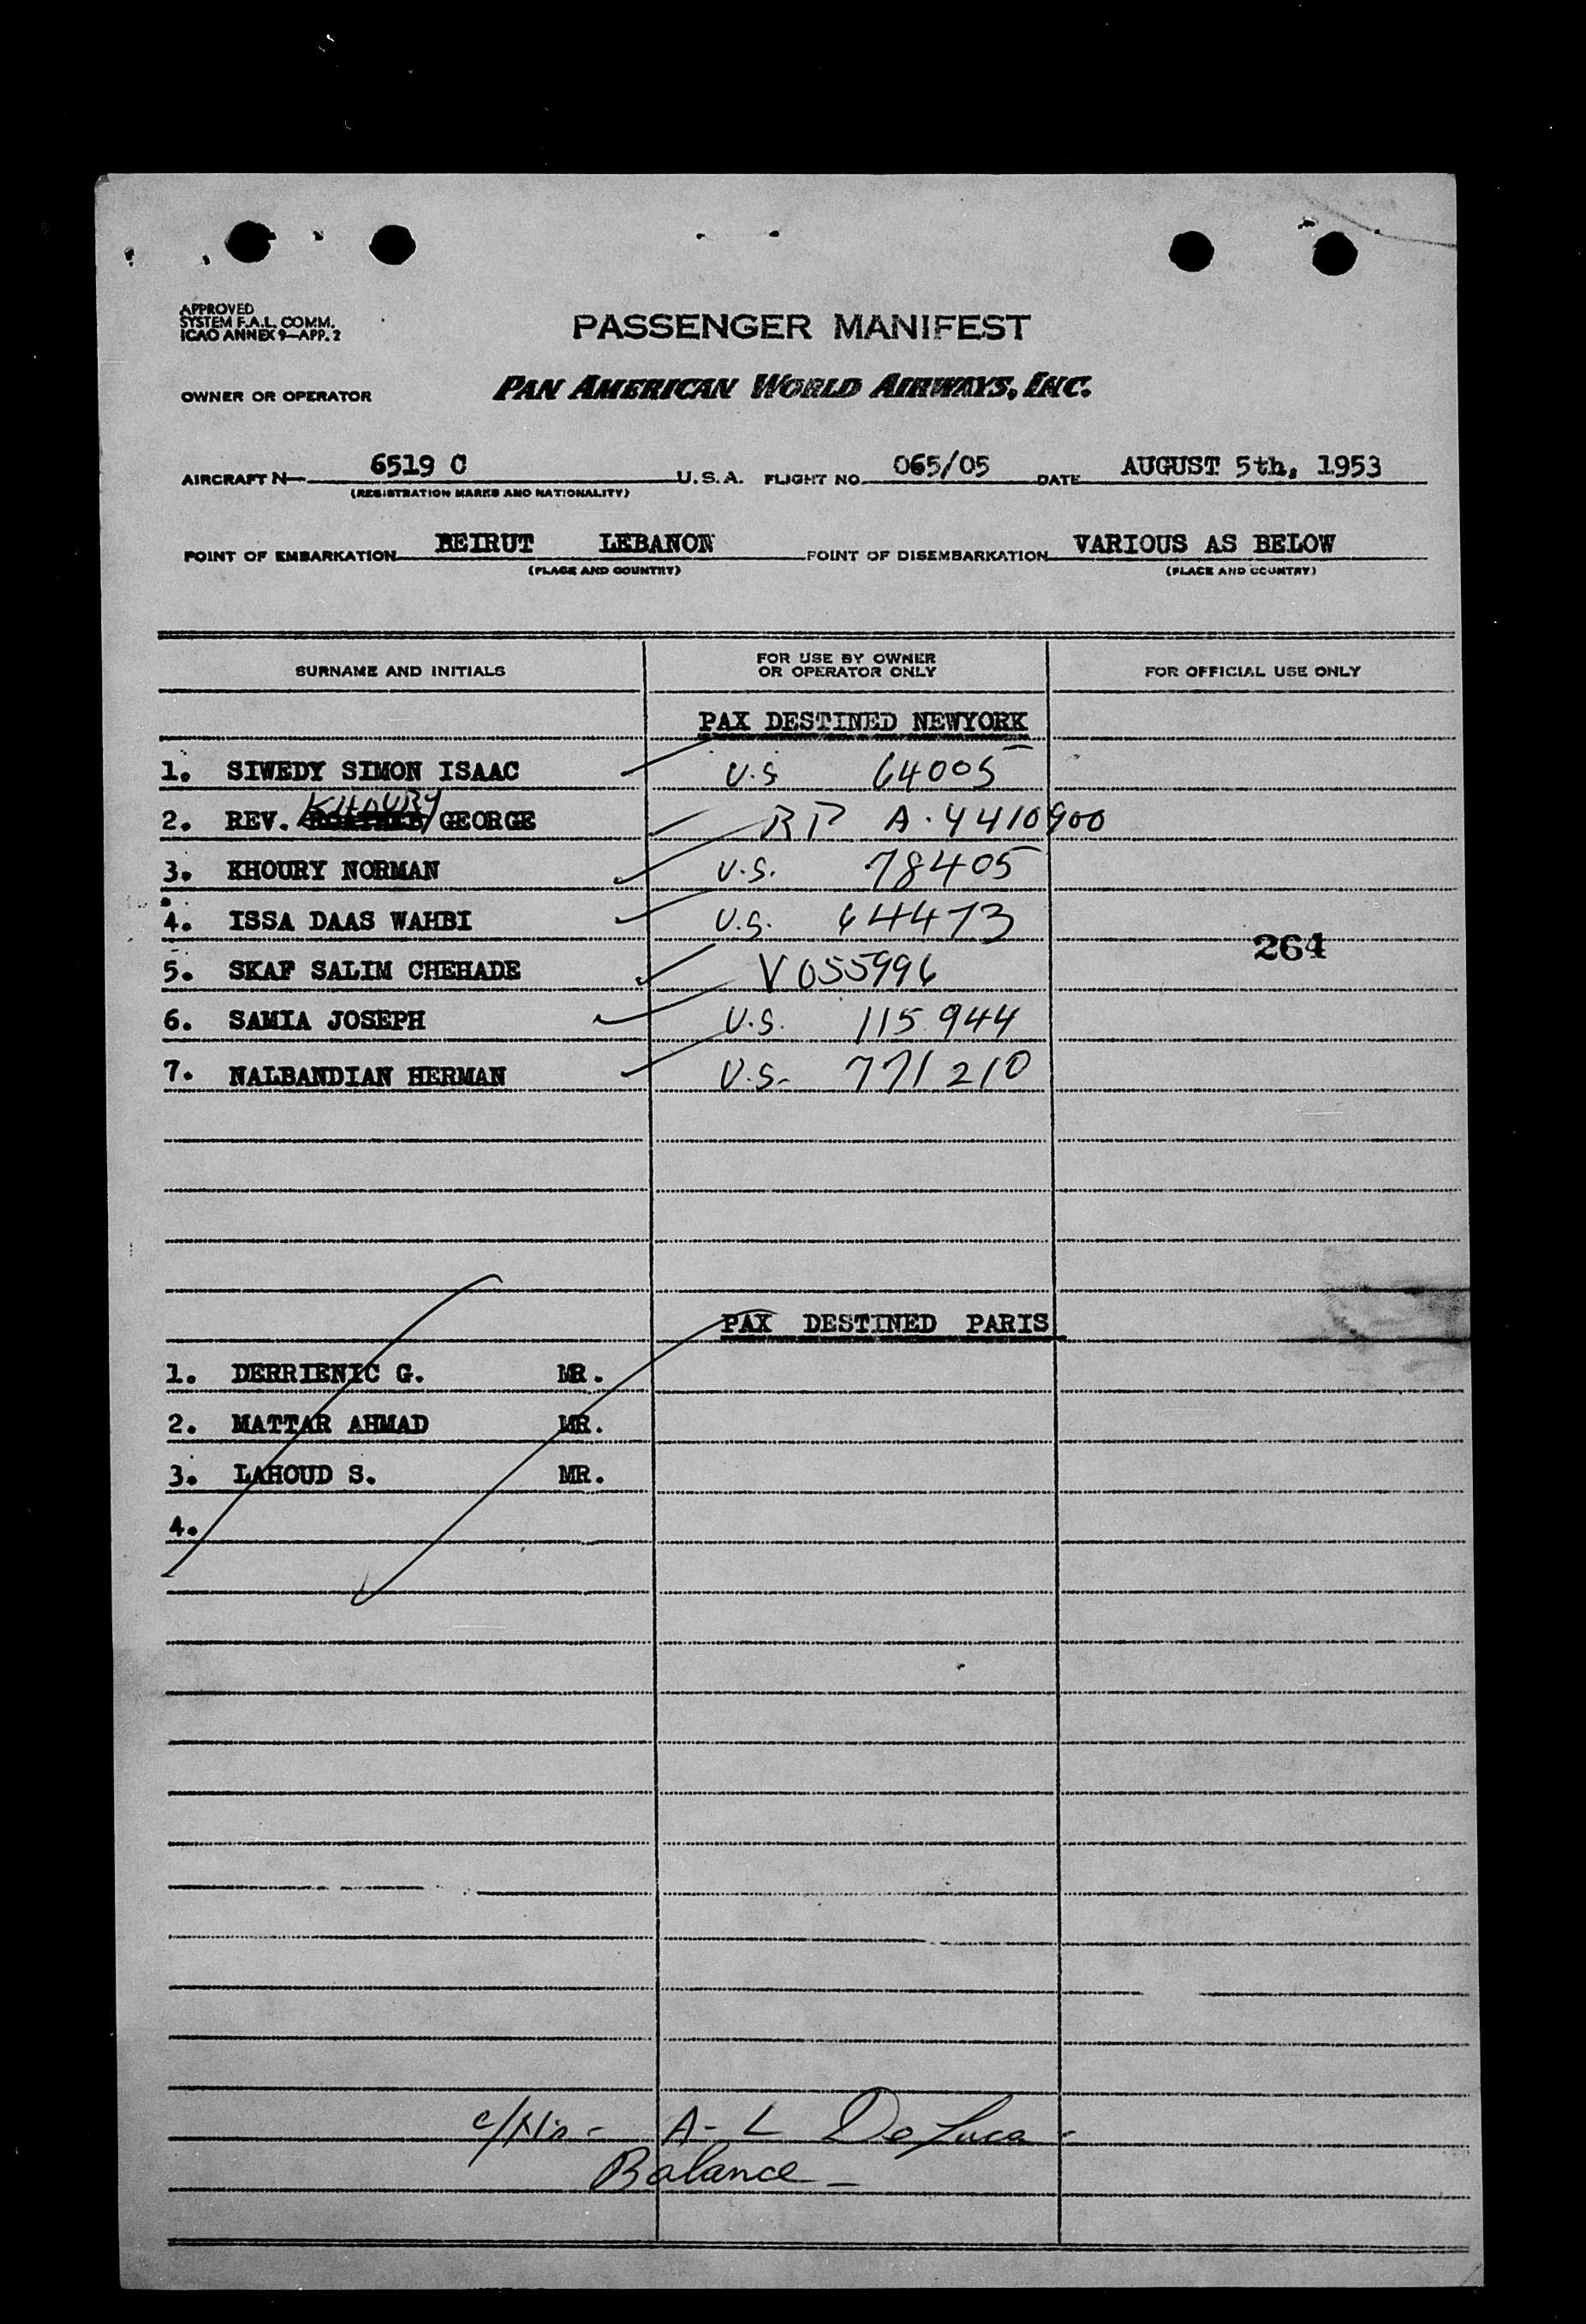 APPROVED
SYSTEM F.A.L. COMM.
ICAO ANNEX 9—APP. 2
PASSENGER MANIFEST
OWNER OR OPERATOR PAN AMERICAN WORLD AIRWAYS, INC.
AIRCRAFT N— 6519 C U.S.A. FLIGHT NO. 065/05 DATE AUGUST 5th, 1953
(REGISTRATION MARKS AND NATIONALITY)
POINT OF EMBARKATION BEIRUT LEBANON POINT OF DISEMBARKATION VARIOUS AS BELOW
(PLACE AND COUNTRY) (PLACE AND COUNTRY)
SURNAME AND INITIALS FOR USE BY OWNER OR OPERATOR ONLY FOR OFFICIAL USE ONLY
PAX DESTINED NEWYORK
1. SIWEDY SIMON ISAAC U.S 64005
2. REV. KHOURY GEORGE RP A-4410900
3. KHOURY NORMAN U.S. 78405
4. ISSA DAAS WAHBI U.S. 64473
264
5. SKAF SALIM CHEHADE V055996
6. SAMIA JOSEPH U.S. 115944
7. NALBANDIAN HERMAN U.S- 771210
PAX DESTINED PARIS
1. DERRIENIC G. MR.
2. MATTAR AHMAD MR.
3. LAHOUD S. MR.
4.
A-L De Luca -
Balance -